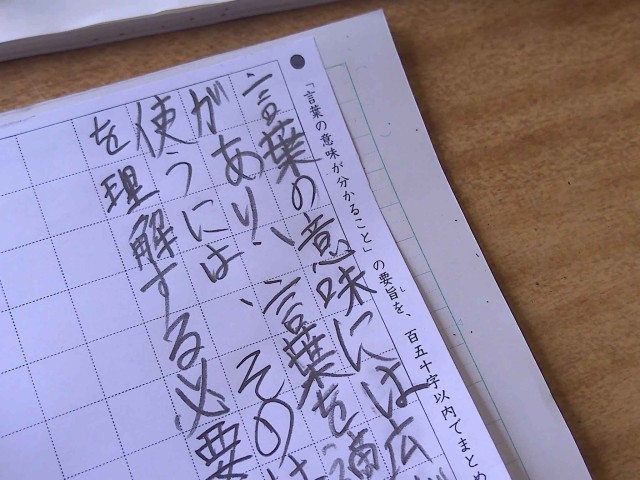 「言葉の意味が分かること」の要旨を、百五十字以内でまとめ
言葉の意味には広
があり、言葉を適
使うには、その
を理解する必要